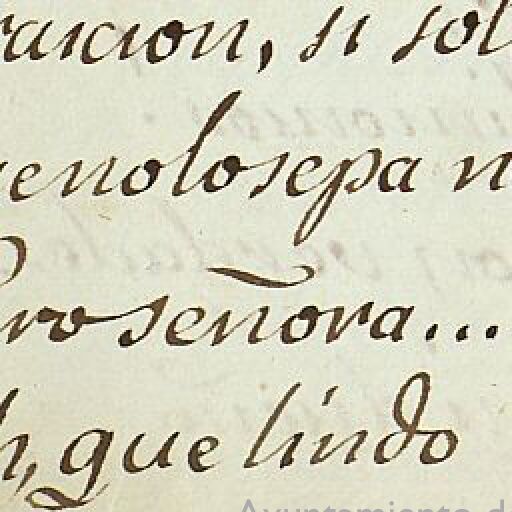 raicion, si sol
enolosepa n
ro señora...
h, que lindo
Ayuntamiento d